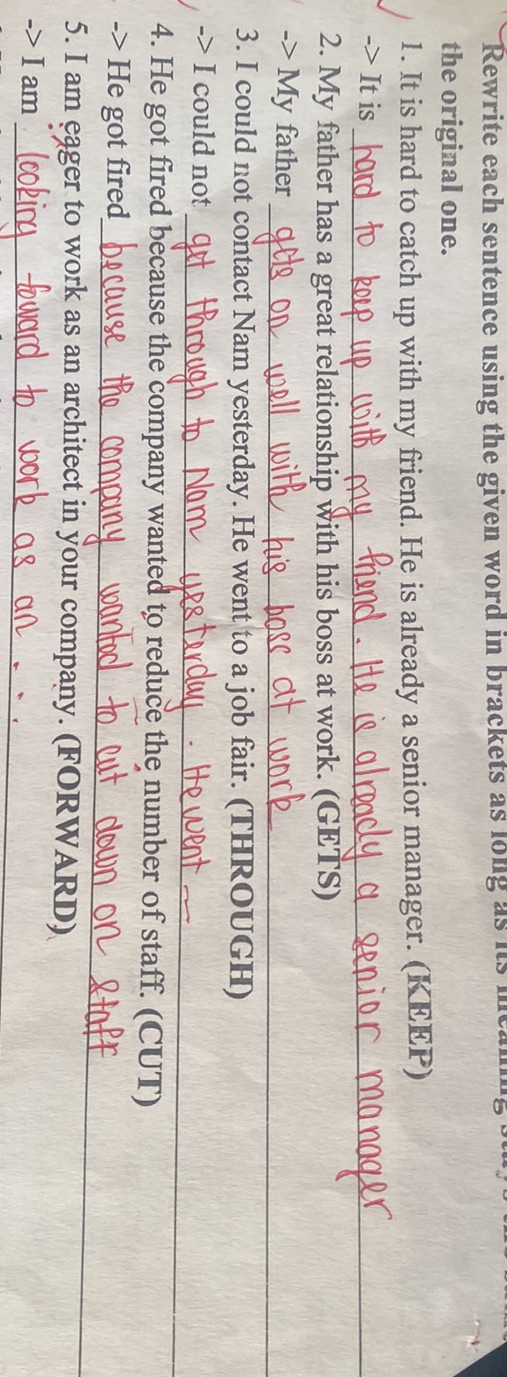 Rewrite each sentence using the given word in brackets as long as its meaning stays the same
the original one.
1. It is hard to catch up with my friend. He is already a senior manager. (KEEP)
-> It is hard to keep up with my friend. He is already a senior manager
2. My father has a great relationship with his boss at work. (GETS)
-> My father gets on well with his boss at work
3. I could not contact Nam yesterday. He went to a job fair. (THROUGH)
-> I could not get through to Nam yesterday. He went
4. He got fired because the company wanted to reduce the number of staff. (CUT)
-> He got fired because the company wanted to cut down on staff
5. I am eager to work as an architect in your company. (FORWARD)
-> I am looking forward to work as an . . .